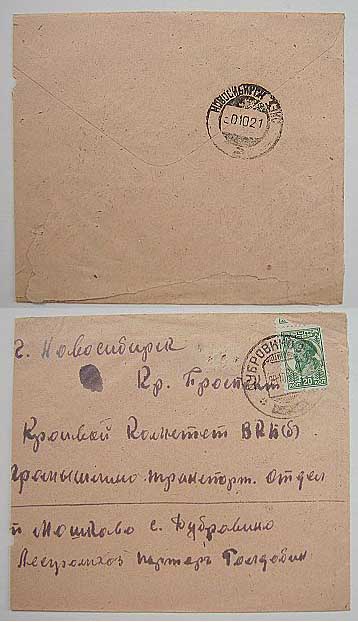 НОВОСИБИРСК
01021
г. Новосибирск
Кр. Проспект
ДУБРОВИНО
20
Краивой Кометет ВКП(б)
Промышлино транспорт. Отдел
Мошково с. Дубравино
Леспромхоз партерг